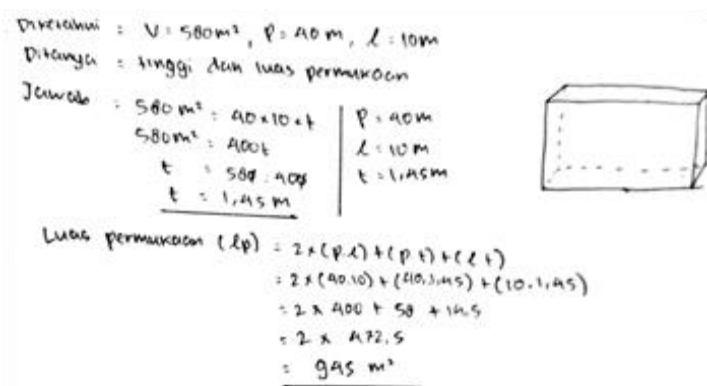 Diketahui : V = 580 m², P = 40 m, l = 10 m
Ditanya : tinggi dan luas permukaan
Jawab : 580 m² = 40 × 10 × t
580 m² = 400 t
t = 580 : 400
t = 1,45 m
P = 40 m
l = 10 m
t = 1,45 m
Luas permukaan (lp) = 2 × (p.l) + (p t) + (l t)
= 2 × (40.10) + (40.1,45) + (10.1,45)
= 2 × 400 + 58 + 14,5
= 2 × 472,5
= 945 m²